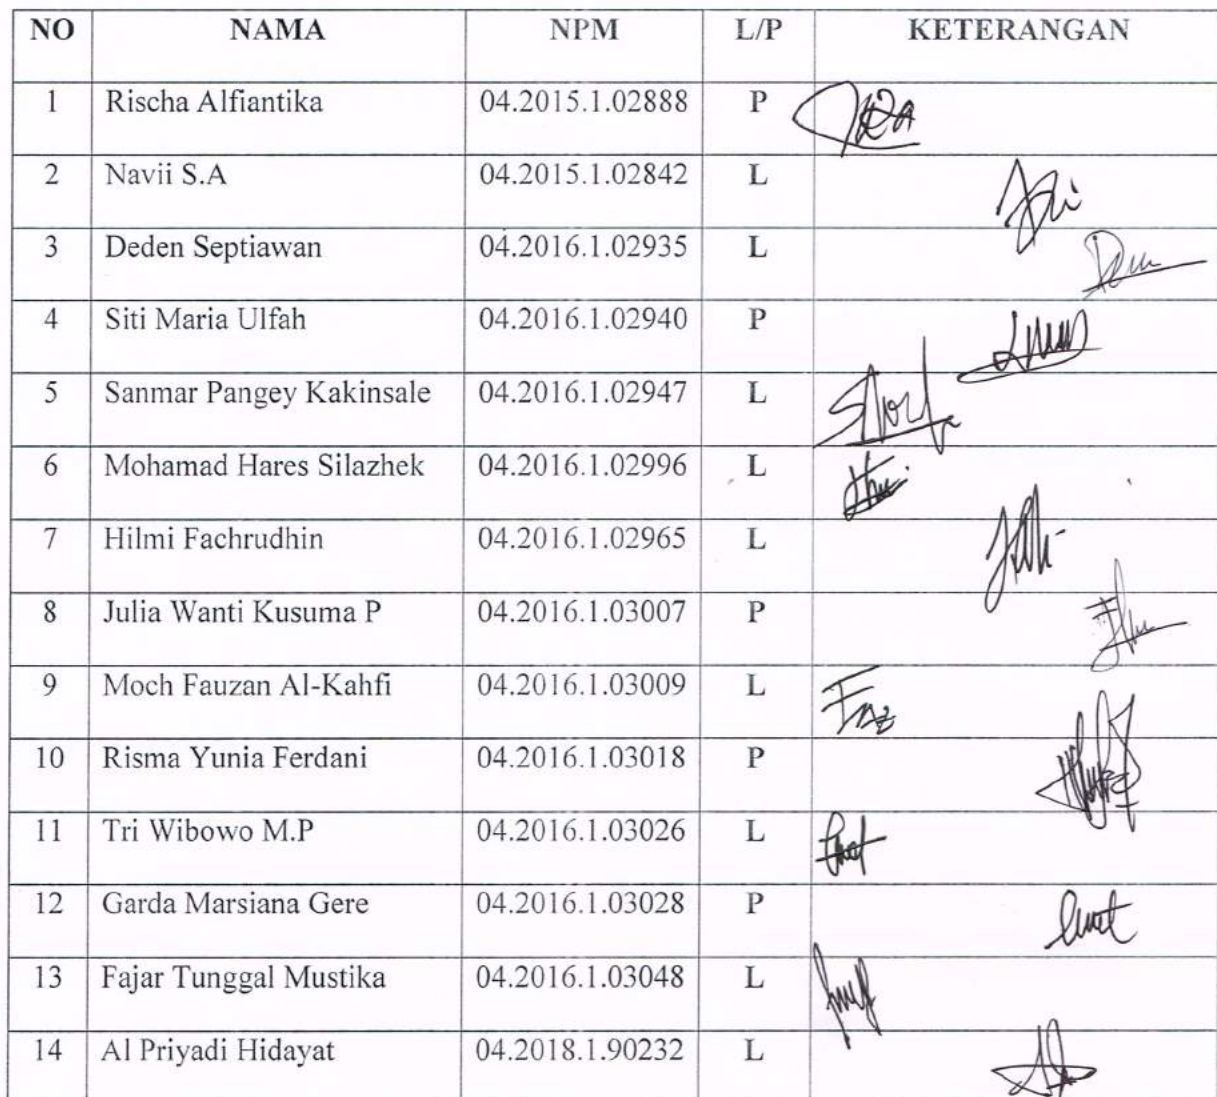 NO NAMA NPM L/P KETERANGAN
1 Rischa Alfiantika 04.2015.1.02888 P
2 Navii S.A 04.2015.1.02842 L
3 Deden Septiawan 04.2016.1.02935 L
4 Siti Maria Ulfah 04.2016.1.02940 P
5 Sanmar Pangey Kakinsale 04.2016.1.02947 L
6 Mohamad Hares Silazhek 04.2016.1.02996 L
7 Hilmi Fachrudhin 04.2016.1.02965 L
8 Julia Wanti Kusuma P 04.2016.1.03007 P
9 Moch Fauzan Al-Kahfi 04.2016.1.03009 L
10 Risma Yunia Ferdani 04.2016.1.03018 P
11 Tri Wibowo M.P 04.2016.1.03026 L
12 Garda Marsiana Gere 04.2016.1.03028 P
13 Fajar Tunggal Mustika 04.2016.1.03048 L
14 Al Priyadi Hidayat 04.2018.1.90232 L